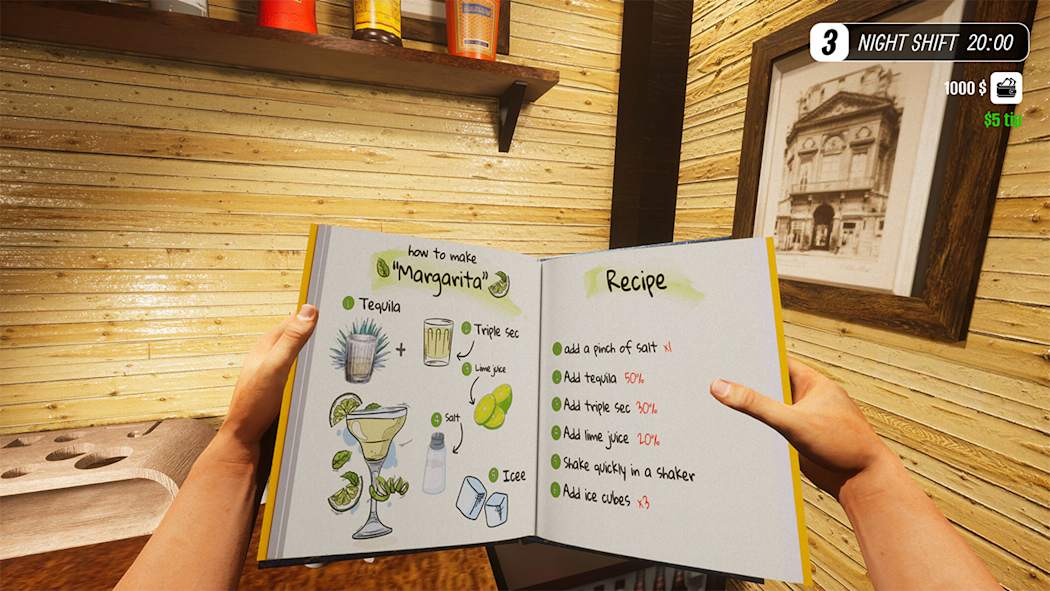 3 NIGHT SHIFT 20:00
1000 $
$5 tip
how to make
"Margarita"
1 Tequila
+
2 Triple sec
3 Lime juice
4 Salt
5 Icee
Recipe
add a pinch of salt x1
Add tequila 50%
Add triple sec 30%
Add lime juice 20%
Shake quickly in a shaker
Add ice cubes x3